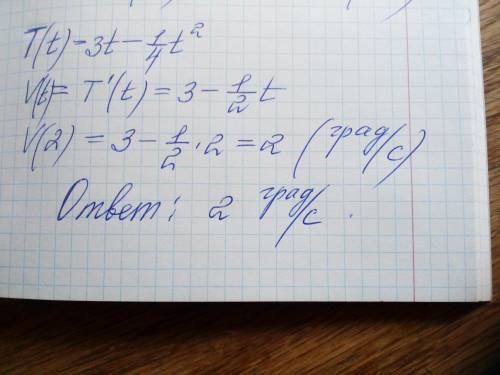 T(t)=3t-1/4t²
V(t)= T'(t) = 3 - 1/2 t
V(2) = 3 - 1/2 · 2 = 2 (град/с)
Ответ: 2 град/с.